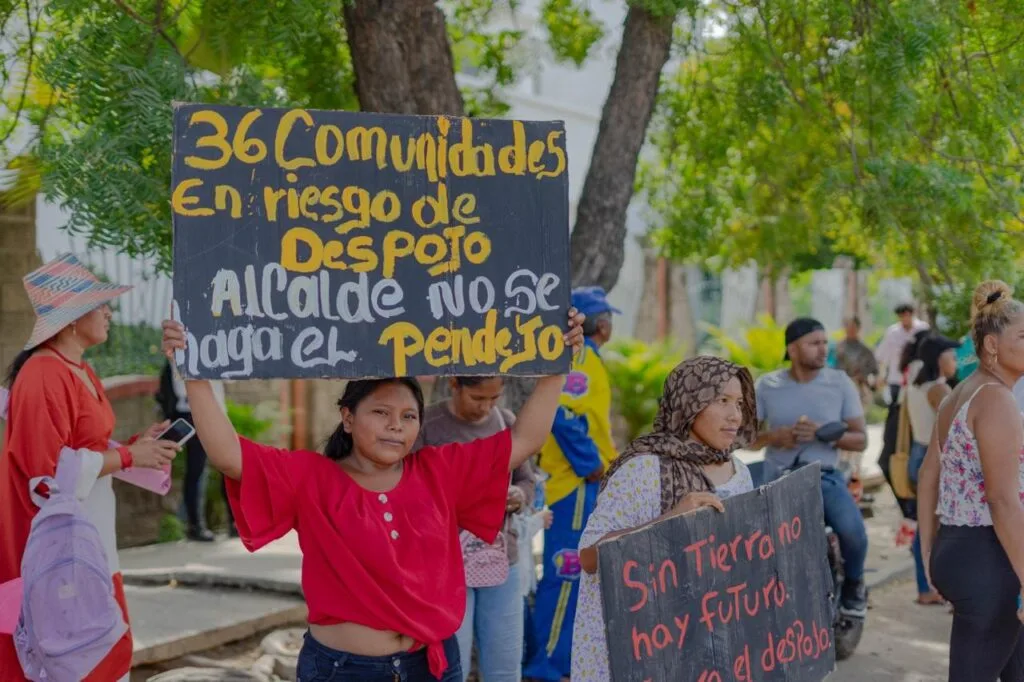 36 Comunidades
En riesgo de
Despojo
Alcalde no se
haga el Pendejo
Sin Tierra no
hay futuro.
el despojo.